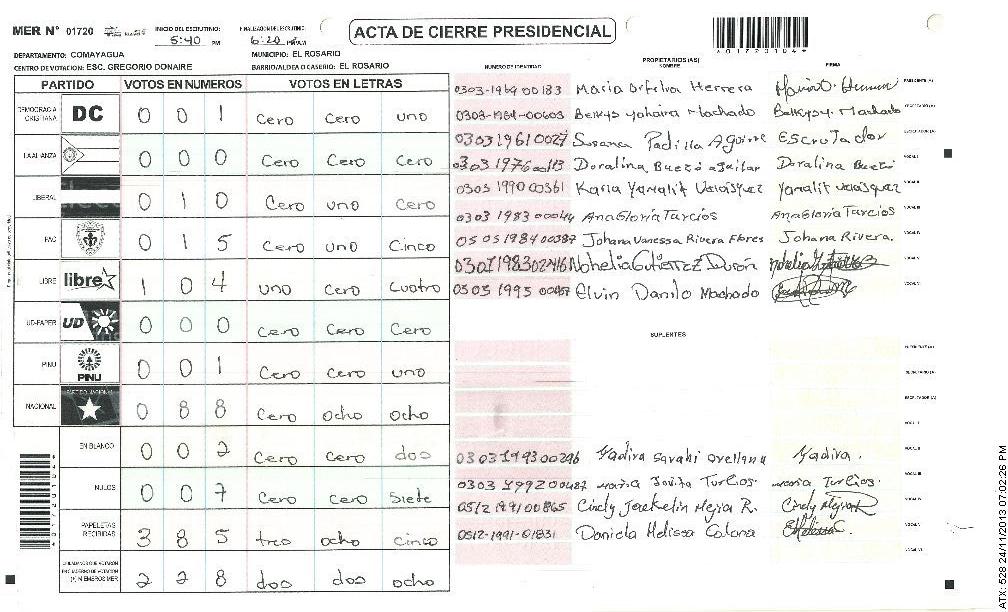 MER N° 01720
INICIO DEL ESCRUTINIO: 5:40 PM
FINALIZACION ESCRUTINIO: 6:20 PM
ACTA DE CIERRE PRESIDENCIAL
DEPARTAMENTO: COMAYAGUA
MUNICIPIO: EL ROSARIO
CENTRO DE VOTACION: ESC. GREGORIO DONAIRE
BARRIO/ALDEA O CASERIO: EL ROSARIO
PARTIDO VOTOS EN NUMEROS VOTOS EN LETRAS
DEMOCRACIA CRISTIANA DC 0 0 1 cero cero uno
LA ALIANZA 0 0 0 Cero Cero Cero
LIBERAL 0 1 0 Cero uno cero
PAC 0 1 5 Cero uno Cinco
LIBRE libre 1 0 4 uno cero cuatro
UD-FAPER UD 0 0 0 Cero Cero Cero
PINU PINU 0 0 1 Cero cero uno
NACIONAL PARTIDO NACIONAL 0 8 8 Cero ocho ocho
EN BLANCO 0 0 2 Cero Cero dos
NULOS 0 0 7 Cero cero siete
PAPELETAS RECIBIDAS 3 8 5 tres ocho cinco
CIUDADANOS QUE VOTARON EN CUADERNO DE VOTACION (+) MIEMBROS MER 2 2 8 dos dos ocho
PROPIETARIOS (AS)
NUMERO DE IDENTIDAD NOMBRE FIRMA
0303-1969 00183 Maria Herrera PRESIDENTE (A)
0303-1984-00603 Belkys Yohaira Machado Belkys y. Machado SECRETARIO (A)
030319610027 Susana Padilla Aguirre Escrutador ESCRUTADOR (A)
0303 1976 Doralina Bueso aguilar Doralina Bueso VOCAL I
0303 1990 00361 Karla Yamalit Velasquez Yamalit Velasquez VOCAL II
0303 1983 00044 Ana Gloria Turcios Ana Gloria Turcios VOCAL III
0505 1984 00387 Johana Vanessa Rivera Flores Johana Rivera. VOCAL IV
0301198302416 Nohelia Gutierrez Durón VOCAL V
0303 1995 Elvin Danilo Machado VOCAL VI
SUPLENTES
PRESIDENTE (A)
SECRETARIO (A)
ESCRUTADOR (A)
VOCAL I
VOCAL II
0303 1993 00296 Yadira Sarahi Orellana Yadira. VOCAL III
0303 1992 00487 Maria Jovita Turcios. Maria Turcios. VOCAL IV
0512 1991 00865 Cindy Jackelin Mejia R. Cindy Mejia R VOCAL V
0512-1991-01831 Daniela Melissa Calona Melissa C. VOCAL VI
ATX: 528 24/11/2013 07:02:26 PM